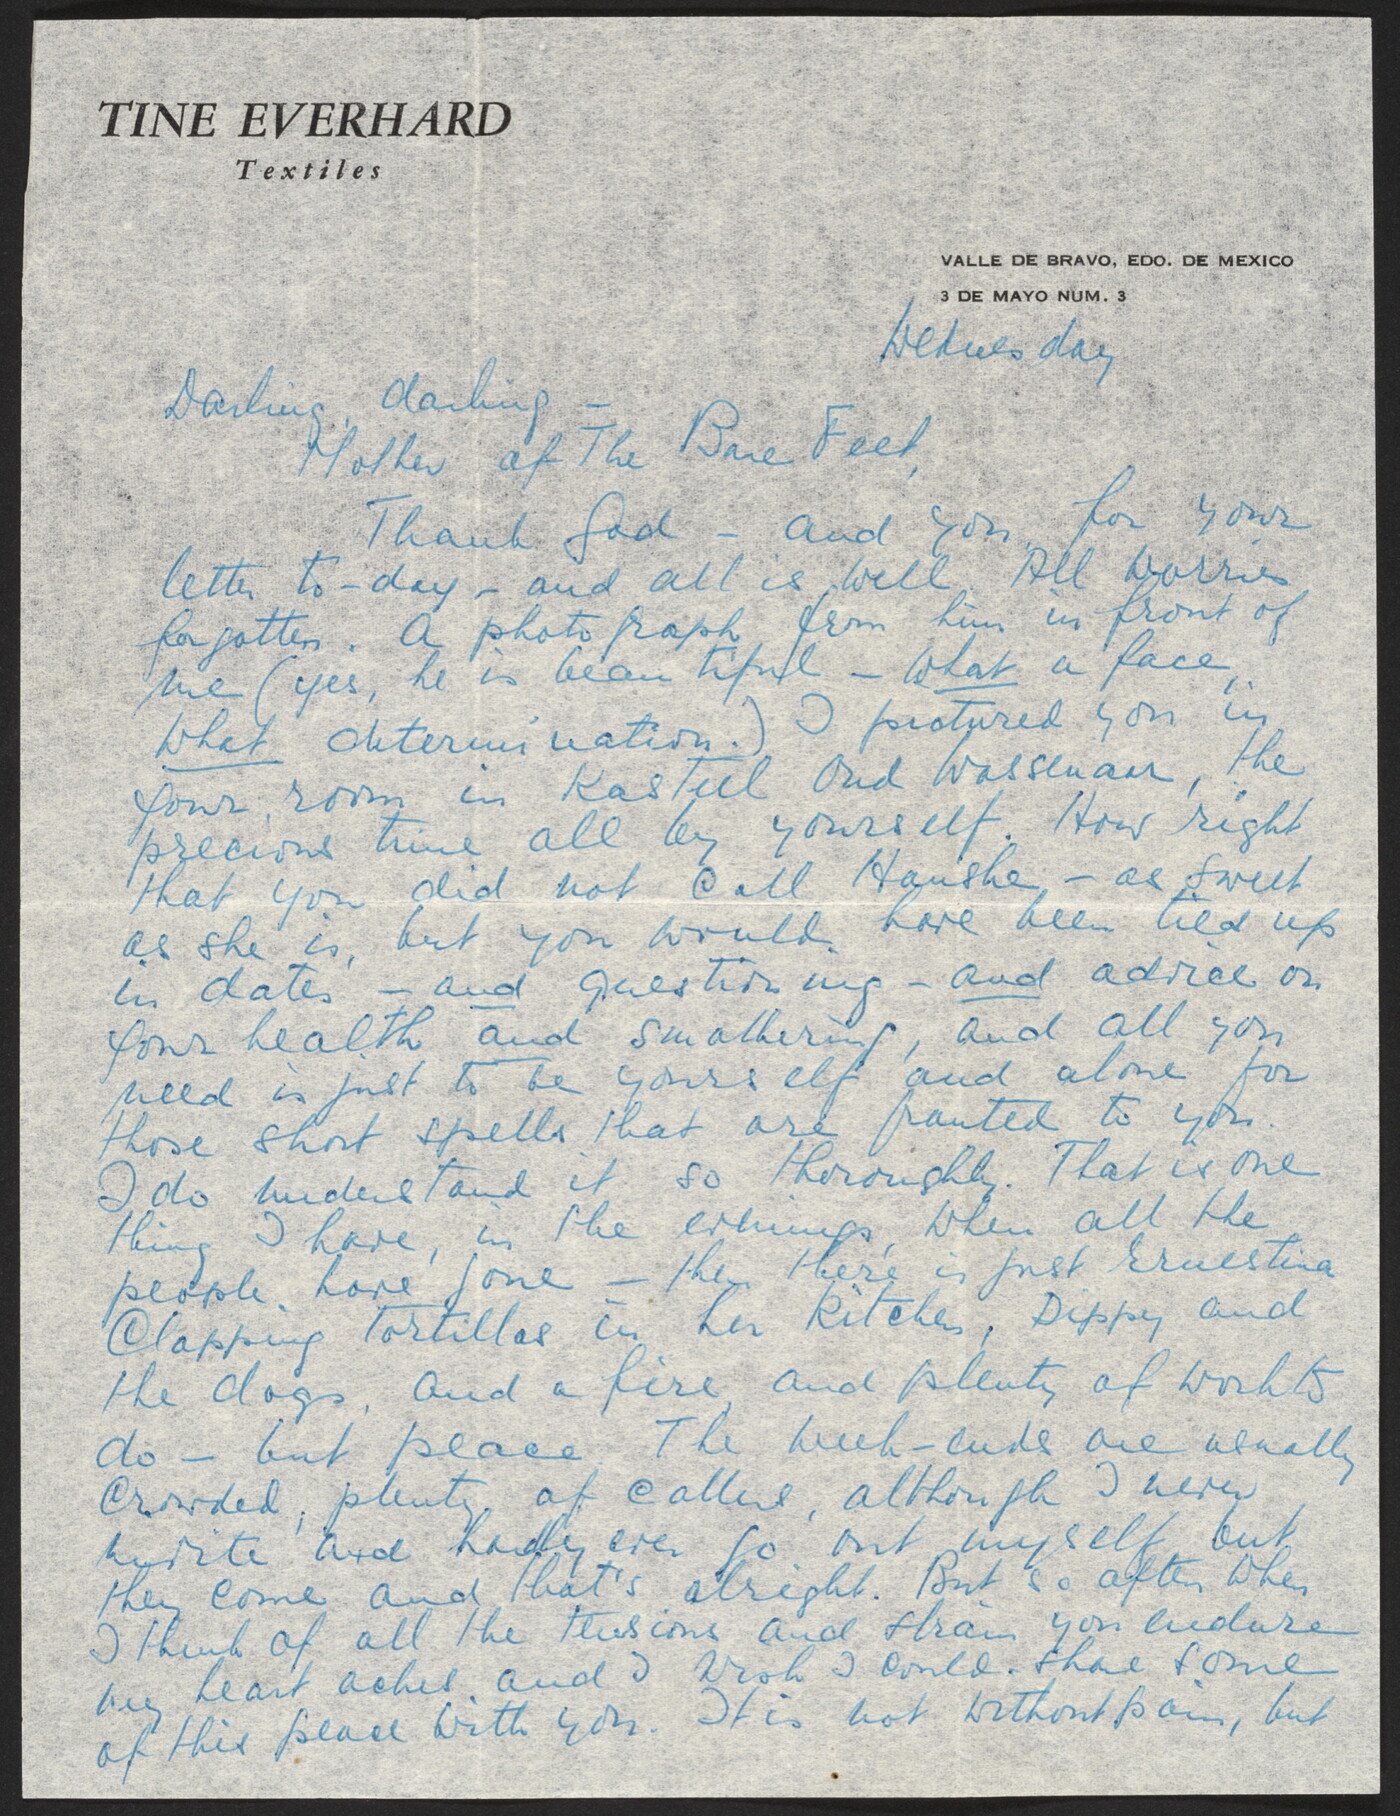 TINE EVERHARD
Textiles
VALLE DE BRAVO, EDO. DE MEXICO
3 DE MAYO NUM. 3
Wednesday
Darling, darling –
Mother of The Bare Feet,
Thank God – and you, for your
letter to-day – and all is well. All worries
forgotten. A photograph from him in front of
me (yes, he is beautiful – what a face,
what determination.) I pictured you in
your room in Kasteel Oud Wassenaar, the
precious time all by yourself. How right
that you did not call Hanshe, – as sweet
as she is, but you would have been tied up
in dates – and questioning – and advice on
your health and smothering, and all you
need is just to be yourself and alone for
those short spells that are granted to you.
I do understand it so thoroughly. That is one
thing I have, in the evenings, when all the
people have gone – then there is just Ernestina
Clapping tortillas in her kitchen, Dippy and
the dogs, and a fire, and plenty of work to
do – but peace. The week-ends are usually
Crowded, plenty of callers, although I never
invite and hardly ever go out myself, but
they come and that's alright. But so often when
I think of all the tensions and strain you endure
my heart aches, and I wish I could share some
of this peace with you. It is not without pain, but